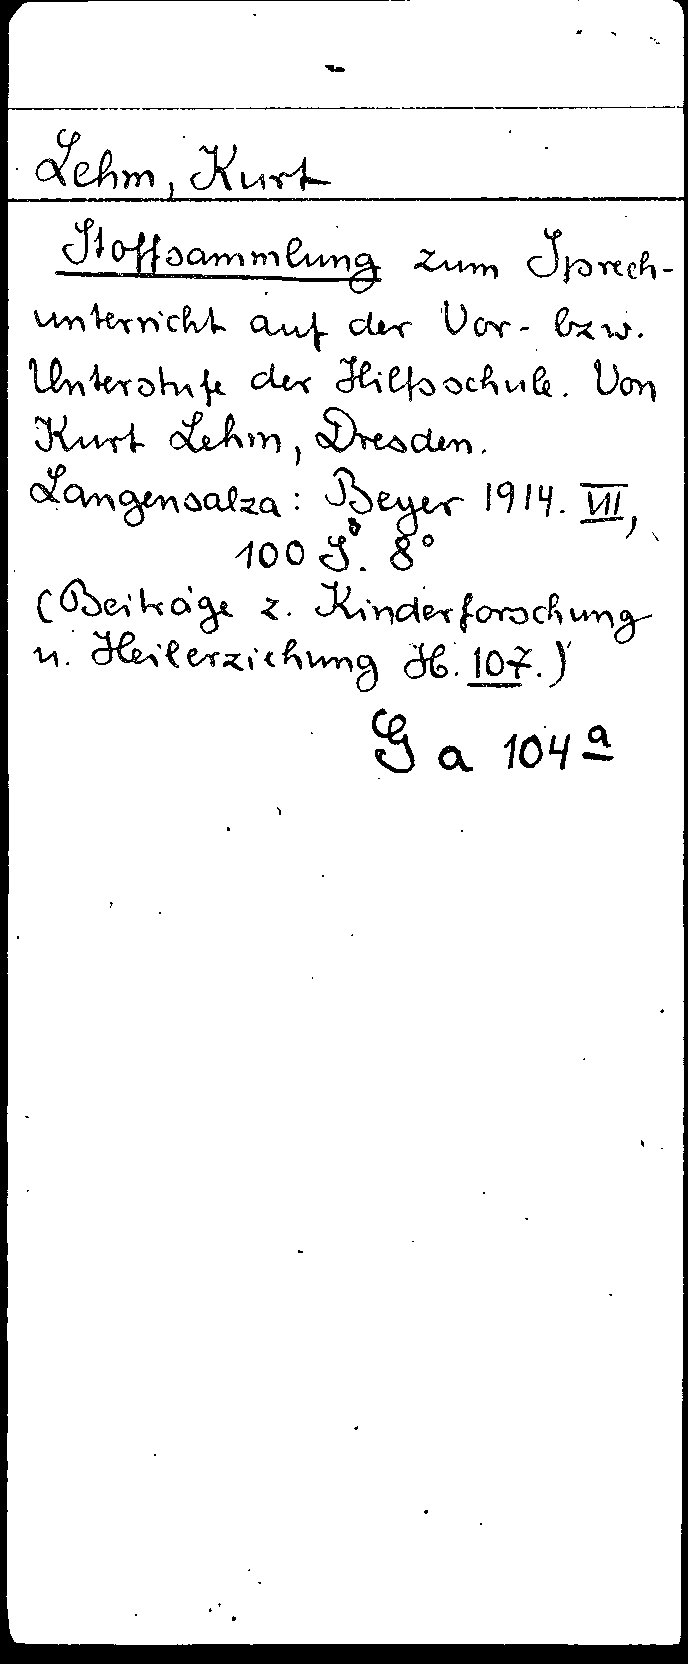 Lehm, Kurt
Stoffsammlung zum Sprech-
unterricht auf der Vor- bzw.
Unterstufe der Hilfsschule. Von
Kurt Lehm, Dresden.
Langensalza: Beyer 1914. VII,
100 S. 8°
(Beiträge z. Kinderforschung
u. Heilerziehung H. 107.)
G a 104 a